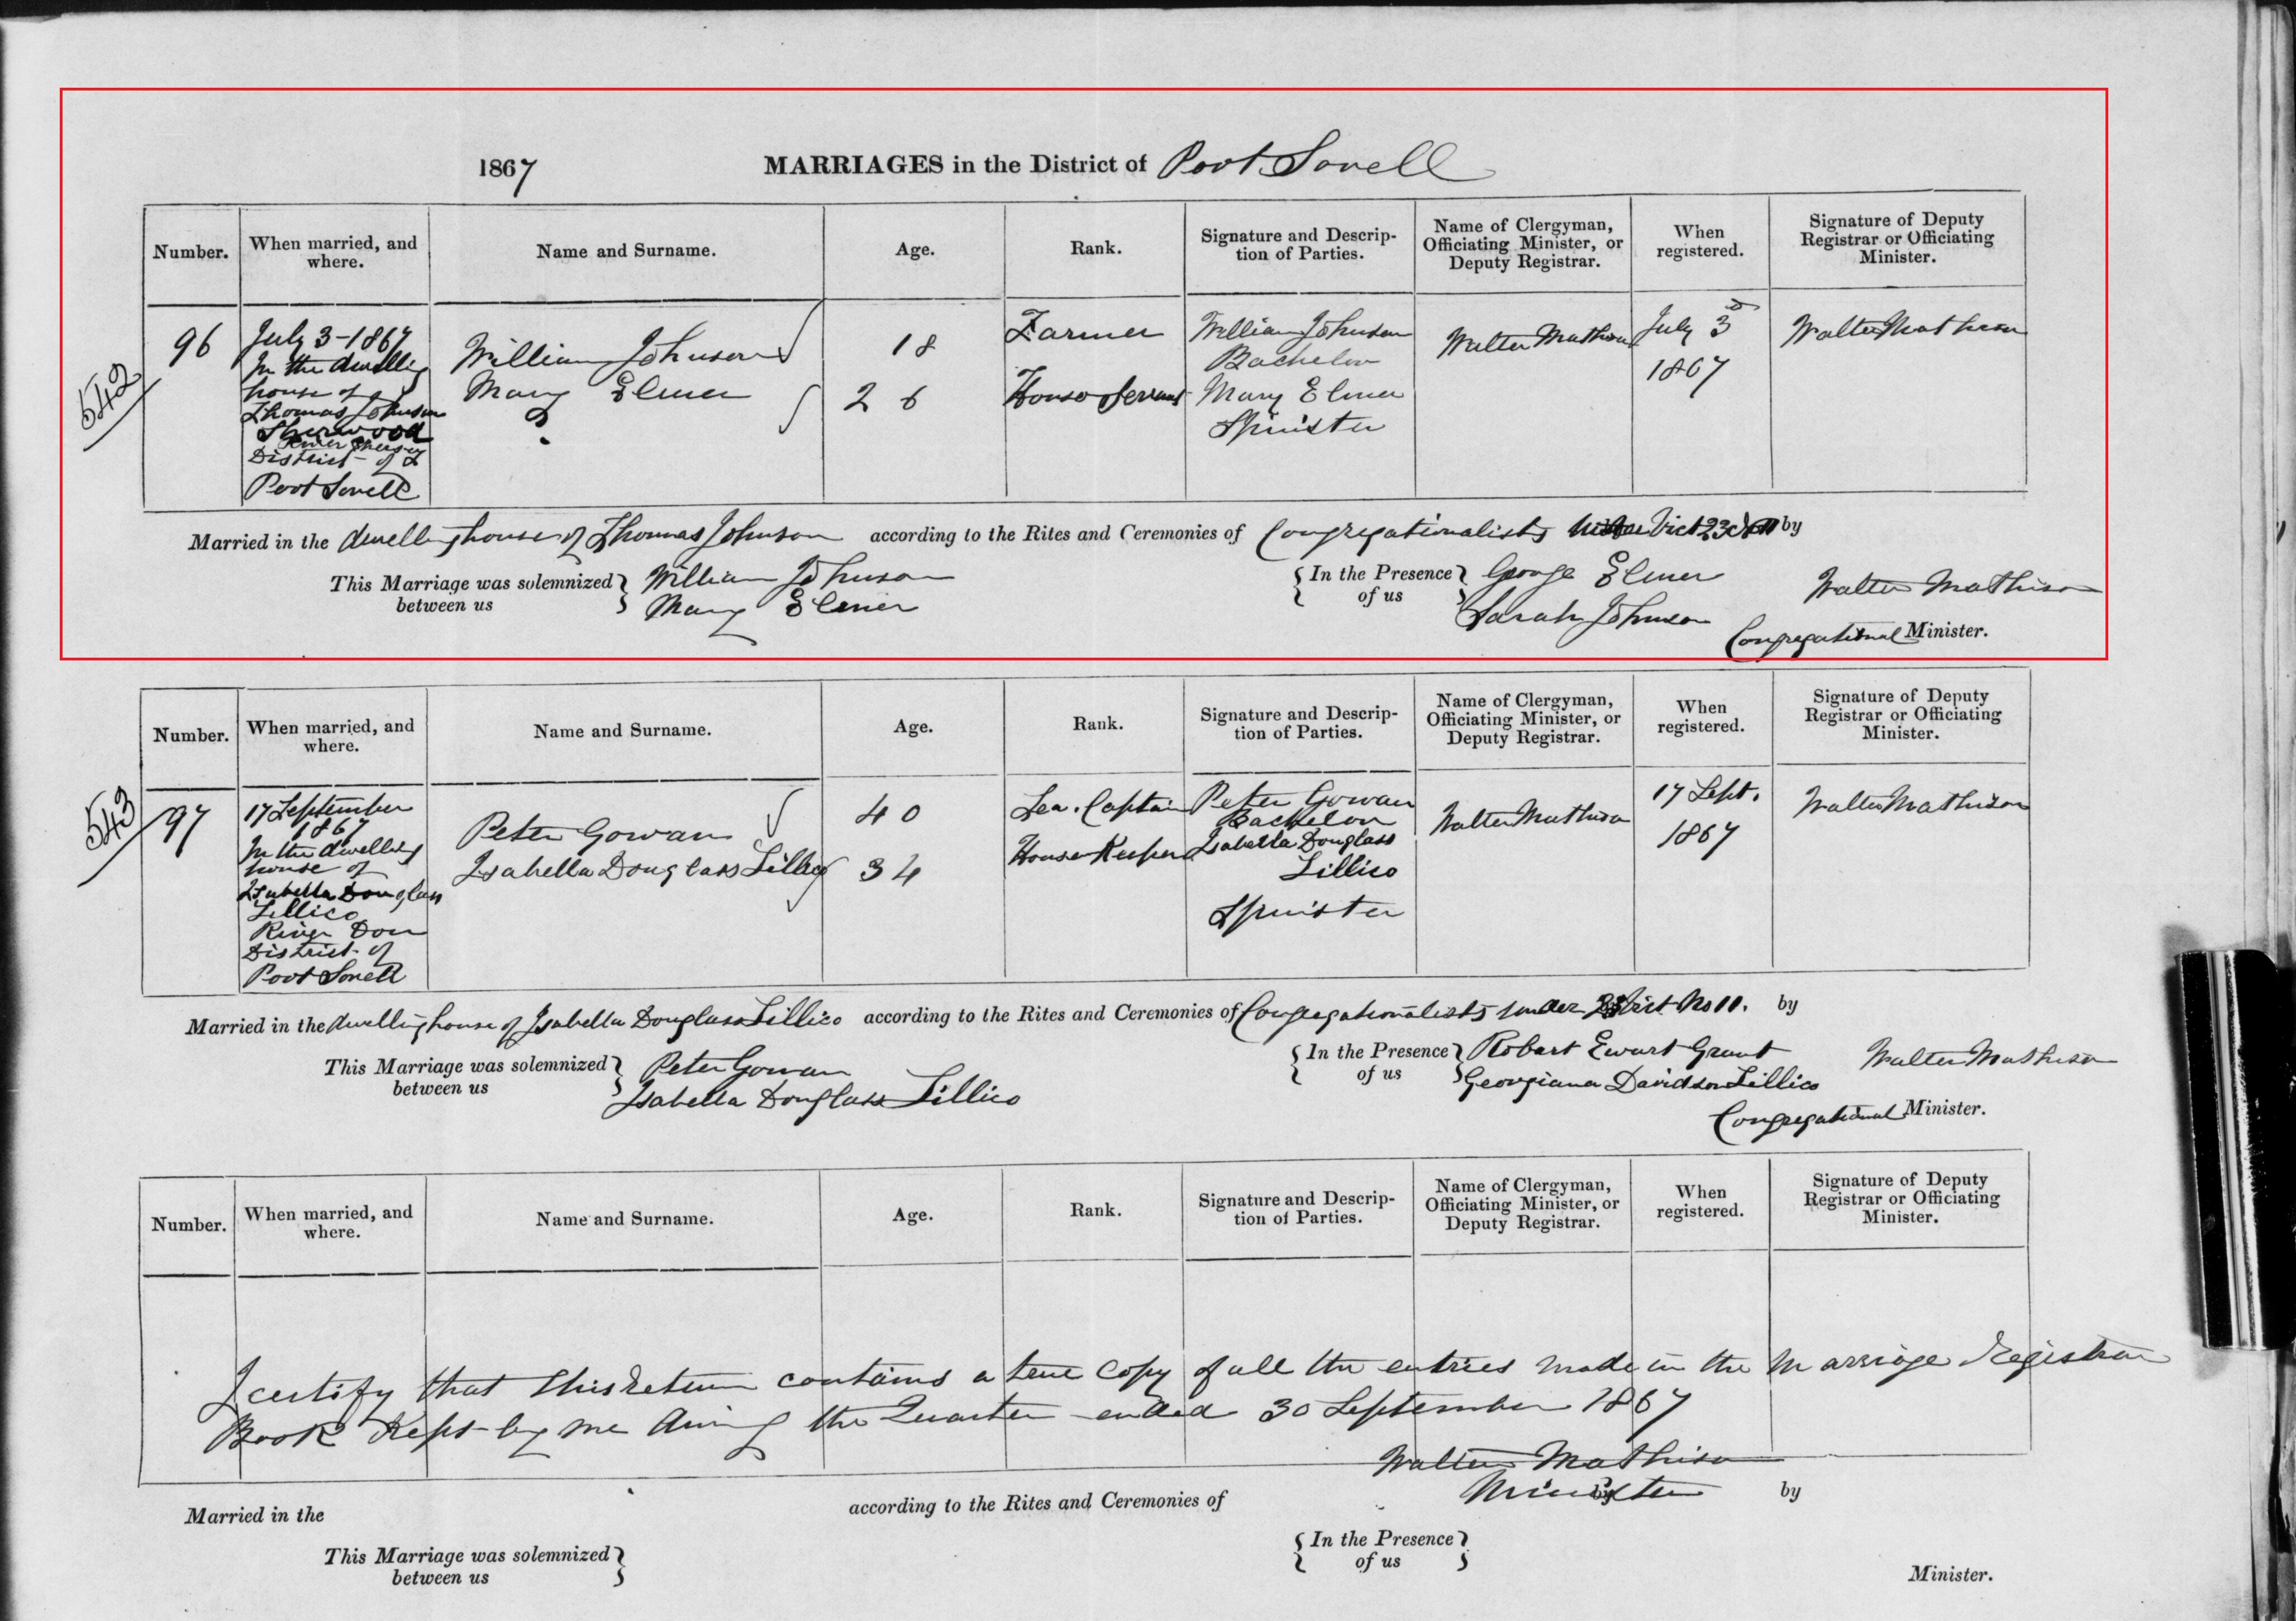 1867 MARRIAGES in the District of Port Sorell
Number. When married, and where. Name and Surname. Age. Rank. Signature and Description of Parties. Name of Clergyman, Officiating Minister, or Deputy Registrar. When registered. Signature of Deputy Registrar or Officiating Minister.
542
96
July 3-1867
In the dwelling
house of
Thomas Johnson
Sherwood
River Mersey
District of
Port Sorell
William Johnson
Mary Elmer
18
26
Farmer
House Servant
William Johnson
Bachelor
Mary Elmer
Spinster
Walter Mathison
July 3d
1867
Walter Mathison
Married in the dwelling house of Thomas Johnson according to the Rites and Ceremonies of Congregationalists Vict 23 by
This Marriage was solemnized between us
William Johnson
Mary Elmer
In the Presence of us
George Elmer
Sarah Johnson
Walter Mathison
Congregational Minister.
Number. When married, and where. Name and Surname. Age. Rank. Signature and Description of Parties. Name of Clergyman, Officiating Minister, or Deputy Registrar. When registered. Signature of Deputy Registrar or Officiating Minister.
543
97
17 September
1867
In the dwelling
house of
Isabella Douglass
Lillico
River Don
District of
Port Sorell
Peter Gowan
Isabella Douglass Lillico
40
34
Sea Captain
House Keeper
Peter Gowan
Bachelor
Isabella Douglass
Lillico
Spinster
Walter Mathison
17 Sept.
1867
Walter Mathison
Married in the dwelling house of Isabella Douglass Lillico according to the Rites and Ceremonies of Congregationalists under Vict No 11. by
This Marriage was solemnized between us
Peter Gowan
Isabella Douglass Lillico
In the Presence of us
Robert Ewart Grant
Georgiana Davidson Lillico
Walter Mathison
Congregational Minister.
Number. When married, and where. Name and Surname. Age. Rank. Signature and Description of Parties. Name of Clergyman, Officiating Minister, or Deputy Registrar. When registered. Signature of Deputy Registrar or Officiating Minister.
I certify that this return contains a true copy of all the entries made in the Marriage Register
Book Kept by me during the Quarter ended 30 September 1867
Walter Mathison
Minister
Married in the according to the Rites and Ceremonies of by
This Marriage was solemnized between us
In the Presence of us
Minister.